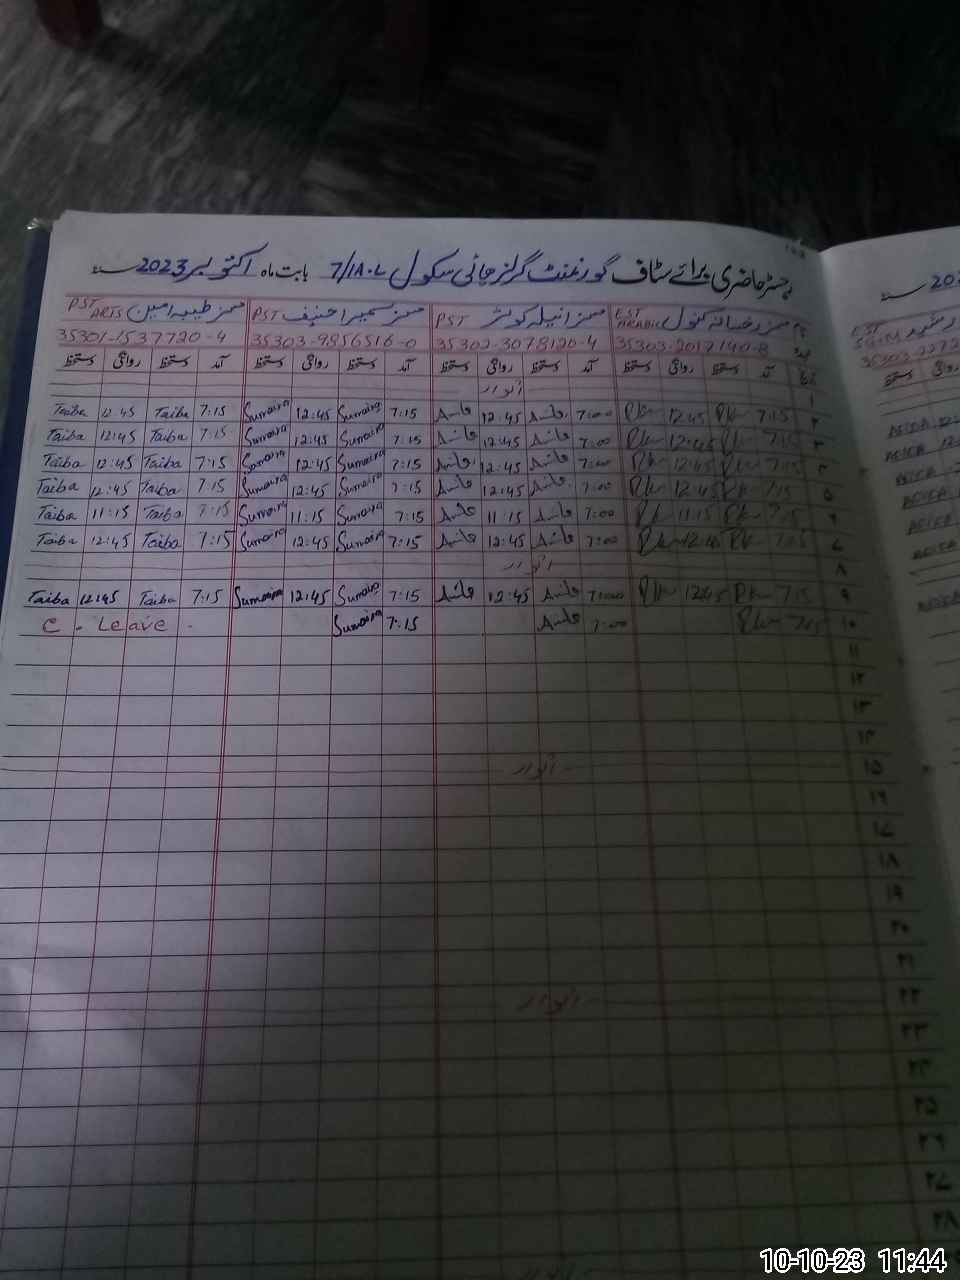 رجسٹر حاضری برائے سٹاف گورنمنٹ گرلز ہائی سکول 7/1A.L بابت ماہ اکتوبر 2023 سنہ
نام مسز رخسانہ کنول EST ARABIC مسز انیلہ کوثر PST مسز سمیرا حنیف PST مسز طیبہ امین PST ARTS
35303-2017140-8 35302-3078120-4 35303-9856516-0 35301-1537720-4
تاریخ آمد دستخط روانگی دستخط آمد دستخط روانگی دستخط آمد دستخط روانگی دستخط آمد دستخط روانگی دستخط
۱ اتوار
۲ 7:15 12:45 7:00 12:45 7:15 Sumaira 12:45 Sumaira 7:15 Taiba 12:45 Taiba
۳ 7:15 12:45 7:00 12:45 7:15 Sumaira 12:45 Sumaira 7:15 Taiba 12:45 Taiba
7:15 12:45 7:00 12:45 7:15 Sumaira 12:45 Sumaira 7:15 Taiba 12:45 Taiba
۵ 7:15 12:45 7:00 12:45 7:15 Sumaira 12:45 Sumaira 7:15 Taiba 12:45 Taiba
7:15 11:15 7:00 11:15 7:15 Sumaira 11:15 Sumaira 7:15 Taiba 11:15 Taiba
۷ 7:15 12:45 7:00 12:45 7:15 Sumaira 12:45 Sumaira 7:15 Taiba 12:45 Taiba
۸ اتوار
۹ 7:15 12:45 7:00 12:45 7:15 Sumaira 12:45 Sumaira 7:15 Taiba 12:45 Taiba
۱۰ 7:15 7:00 7:15 Sumaira C - Leave -
۱۱
۱۲
۱۳
۱۴
۱۵ اتوار
۱۶
۱۷
۱۸
۱۹
۲۰
۲۱
۲۲ اتوار
۲۳
۲۴
۲۵
۲۶
۲۷
۲۸
10-10-23 11:44